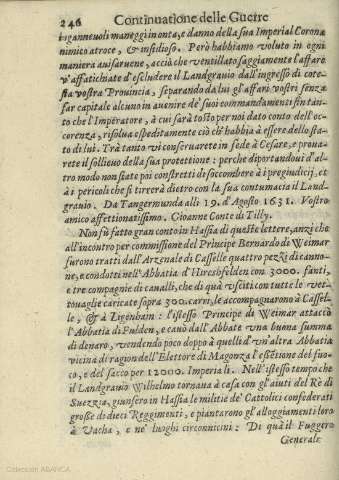 246 Continuatione delle Guerre
nimito atroce, & insidioso. Però habbiamo voluto in ogni
maniera auisaruene, acciò che ventilato saggiamente l'affaro
v'affatichiate d'escludere il Landgrauio dall'ingresso di cote-
sta vostra Prouincia, separando da lui gl'affari vostri senza
far capitale alcuno in auenire de' suoi commandamenti fin tan-
to che l'Imperatore, à cui sarà tosto per noi dato conto dell'oc-
correnza, risolua espeditamente ciò ch'habbia à essere dello sta-
to di lui. Trà tanto vi conseruarete in fede à Cesare, e prouar-
rete il sollieuo della sua protettione: perche diportandoui d'al-
tro modo non siate poi constretti di soccombere à i pregiudicij, et
à i pericoli che si tirerà dietro con la sua contumacia il Land-
grauio. Da Tangermunda alli 19. d'Agosto 1631. Vostro
amico affettionatissimo. Gioanne Conte di Tilly.
Non fù fatto gran conto in Hassia di queste lettere, anzi che
all'incontro per commissione del Principe Bernardo di Weimar
furono tratti dall'Arzenale di Casselle quattro pezzi di canno-
ne, e condotti nell'Abbatia d'Hirschfelden con 3000. fanti,
e tre compagnie di caualli, che di quà vsciti con tutte le vet-
touaglie caricate sopra 300. carri, le accompagnarono à Cassel-
le, & à Zigenhain: l'istesso Principe di Weimar attaccò
l'Abbatia di Fulden, e cauò dall'Abbate vna buona summa
di denaro, vendendo poco doppo à quelli d'vn'altra Abbatia
vicina di ragion dell'Elettore di Magonza l'essētione del fuo-
co, e del sacco per 12000. Imperiali. Nell'istesso tempo che
il Landgrauio Wilhelmo tornaua à casa con gl'aiuti del Rè di
Suezzia, giunsero in Hassia le militie de' Cattolici confederati
grosse di dieci Reggimenti, e piantarono gl'alloggiamenti loro
à Vacha, e ne' luoghi circonuicini: Di quà il Fuggero
Generale
Colección ABANCA